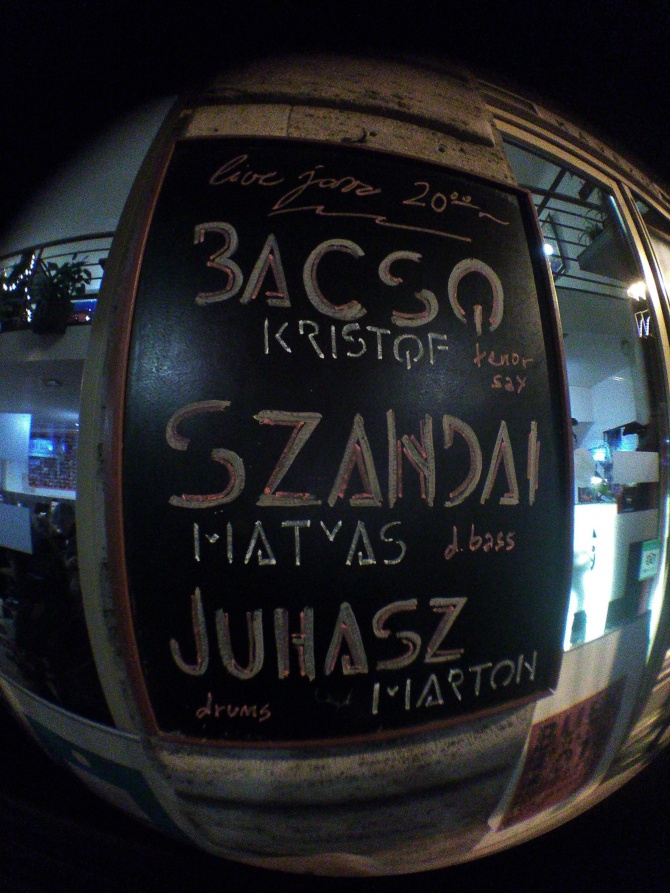 live jazz 20⁰⁰
BACSO
KRISTOF
tenor
sax
SZANDAI
MATYAS d.bass
JUHASZ
MARTON
drums